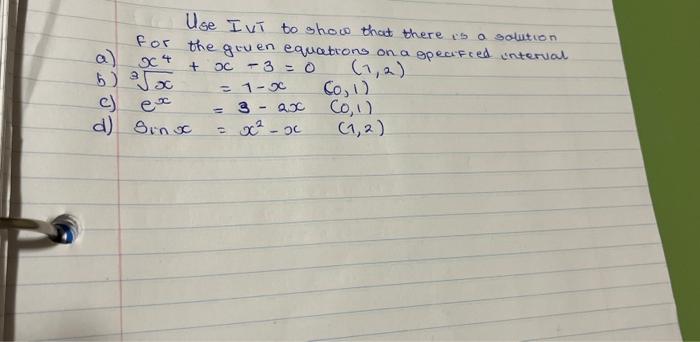 Use IVT to show that there is a solution
for the given equations on a specified interval
a) x⁴ + x - 3 = 0 (1,2)
b) ³√x = 1-x (0,1)
c) eˣ = 3 - 2x (0,1)
d) Sin x = x² - x (1,2)